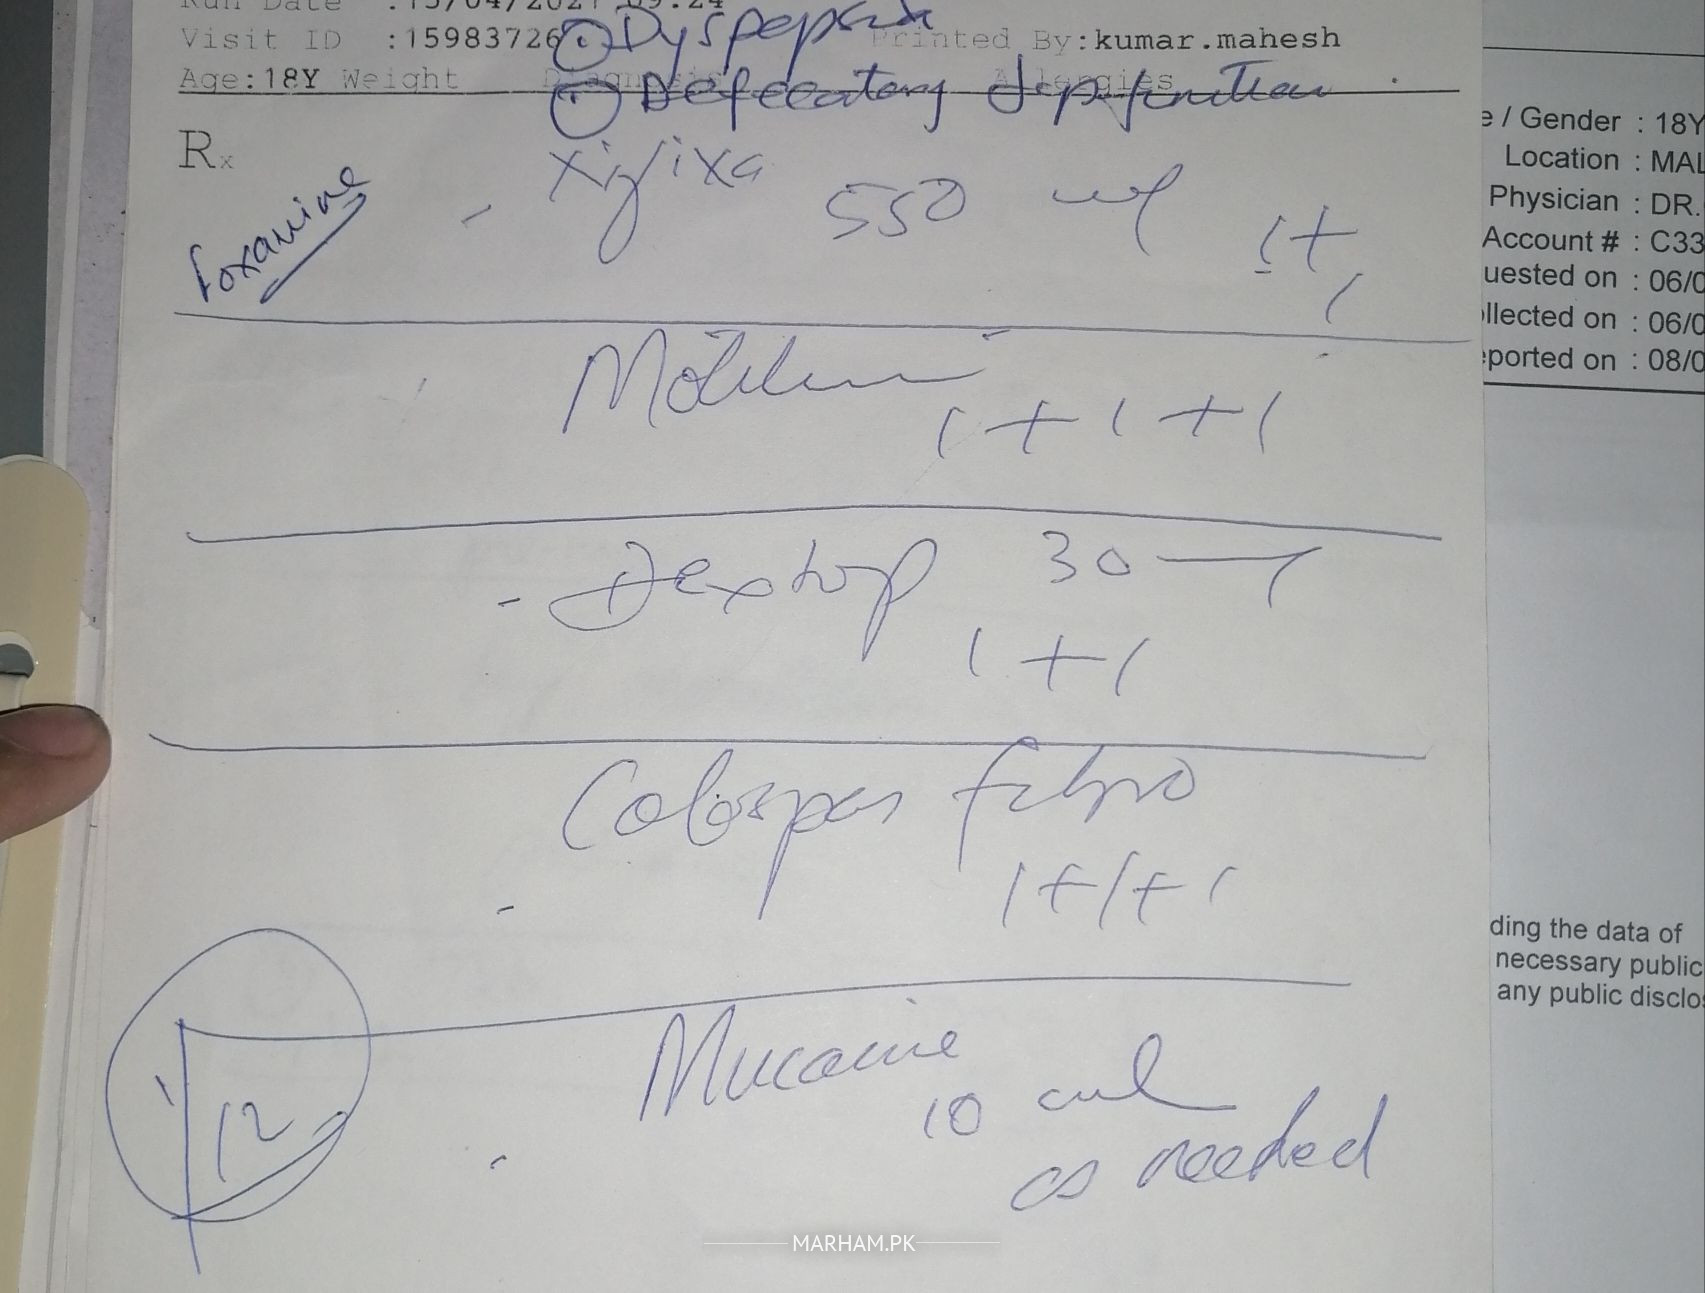 Run Date :15/04/2021 09:24
Visit ID :15983726 Printed By:kumar.mahesh
Dyspepsia
Age:18Y Weight Diagnosis Allergies
Defecatory dysfunction
Rx
Xifixa 550 mg 1+1
foxamine
Motilium
1+1+1
Dextop 30 mg
1+1
Colospas
1+1+1
Mucaine
10 ml
as needed
1/12
e / Gender : 18Y
Location : MAL
Physician : DR.
Account # : C33
uested on : 06/0
llected on : 06/0
eported on : 08/0
ding the data of
necessary public
any public disclo
MARHAM.PK